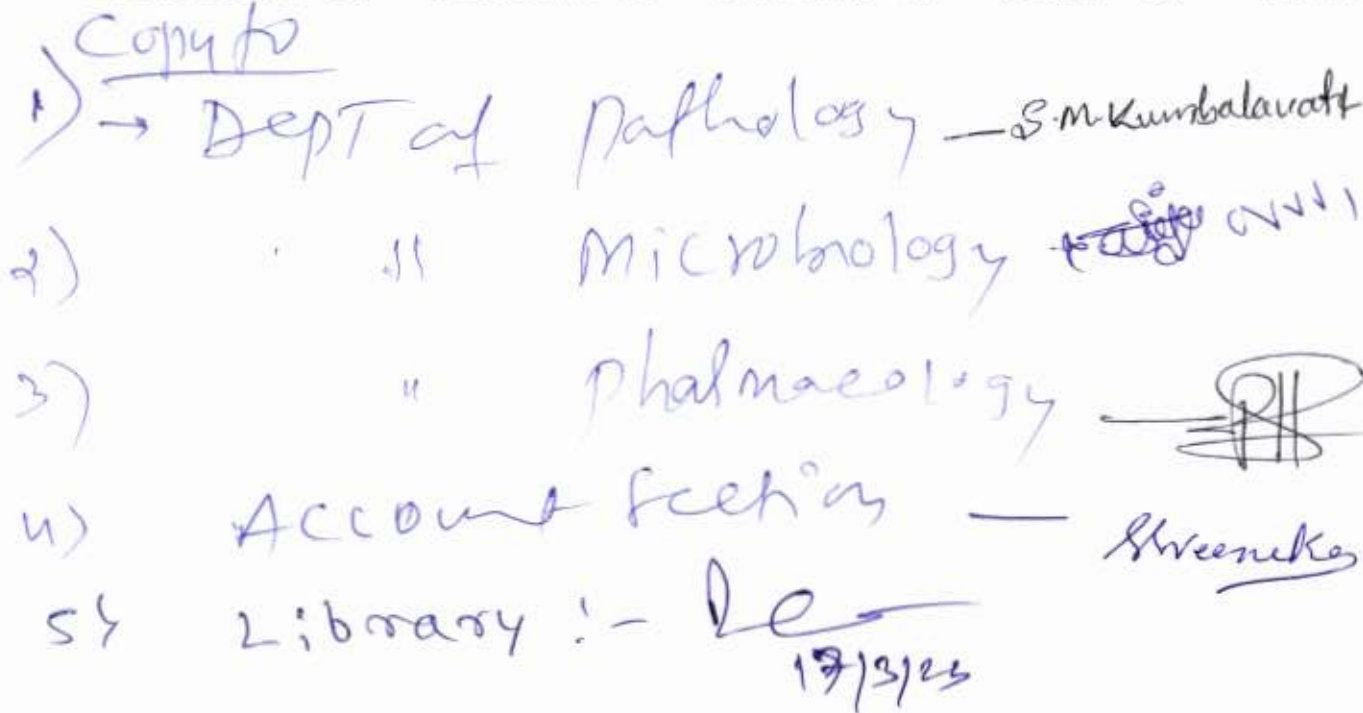 Copy to
1) → DepT of Pathology — S.M.Kumbalavati
2) " Microbiology
3) " Pharmacology —
4) Account Section —
5) Library :-
17/3/23